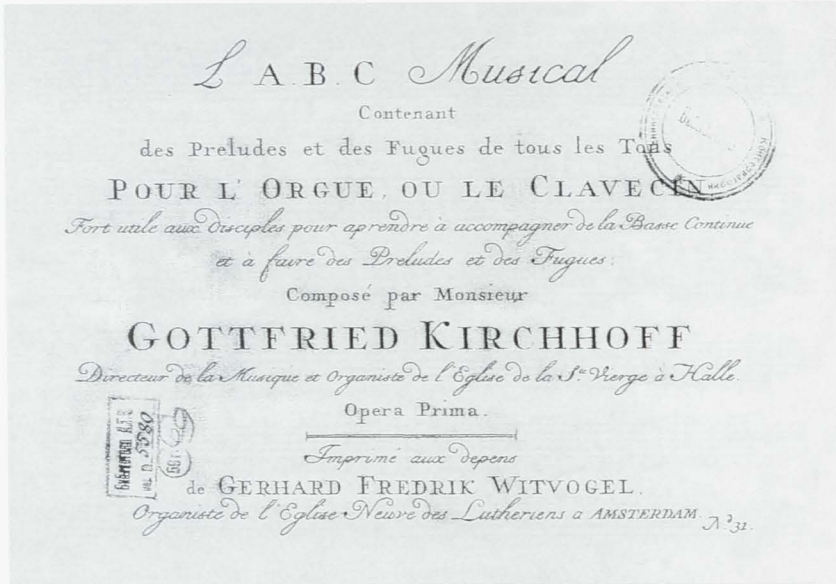 L'A.B.C Musical
Contenant
des Preludes et des Fugues de tous les Tons
POUR L'ORGUE, OU LE CLAVECIN
Fort utile aux disciples pour aprendre à accompagner de la Basse Continue
et à faire des Preludes et des Fugues.
Composé par Monsieur
GOTTFRIED KIRCHHOFF
Directeur de la Musique et Organiste de l'Eglise de la S.te Vierge à Halle.
Opera Prima.
Imprimé aux depens
de GERHARD FREDRIK WITVOGEL.
Organiste de l'Eglise Neuve des Lutheriens a AMSTERDAM.
N.º 31.
5580